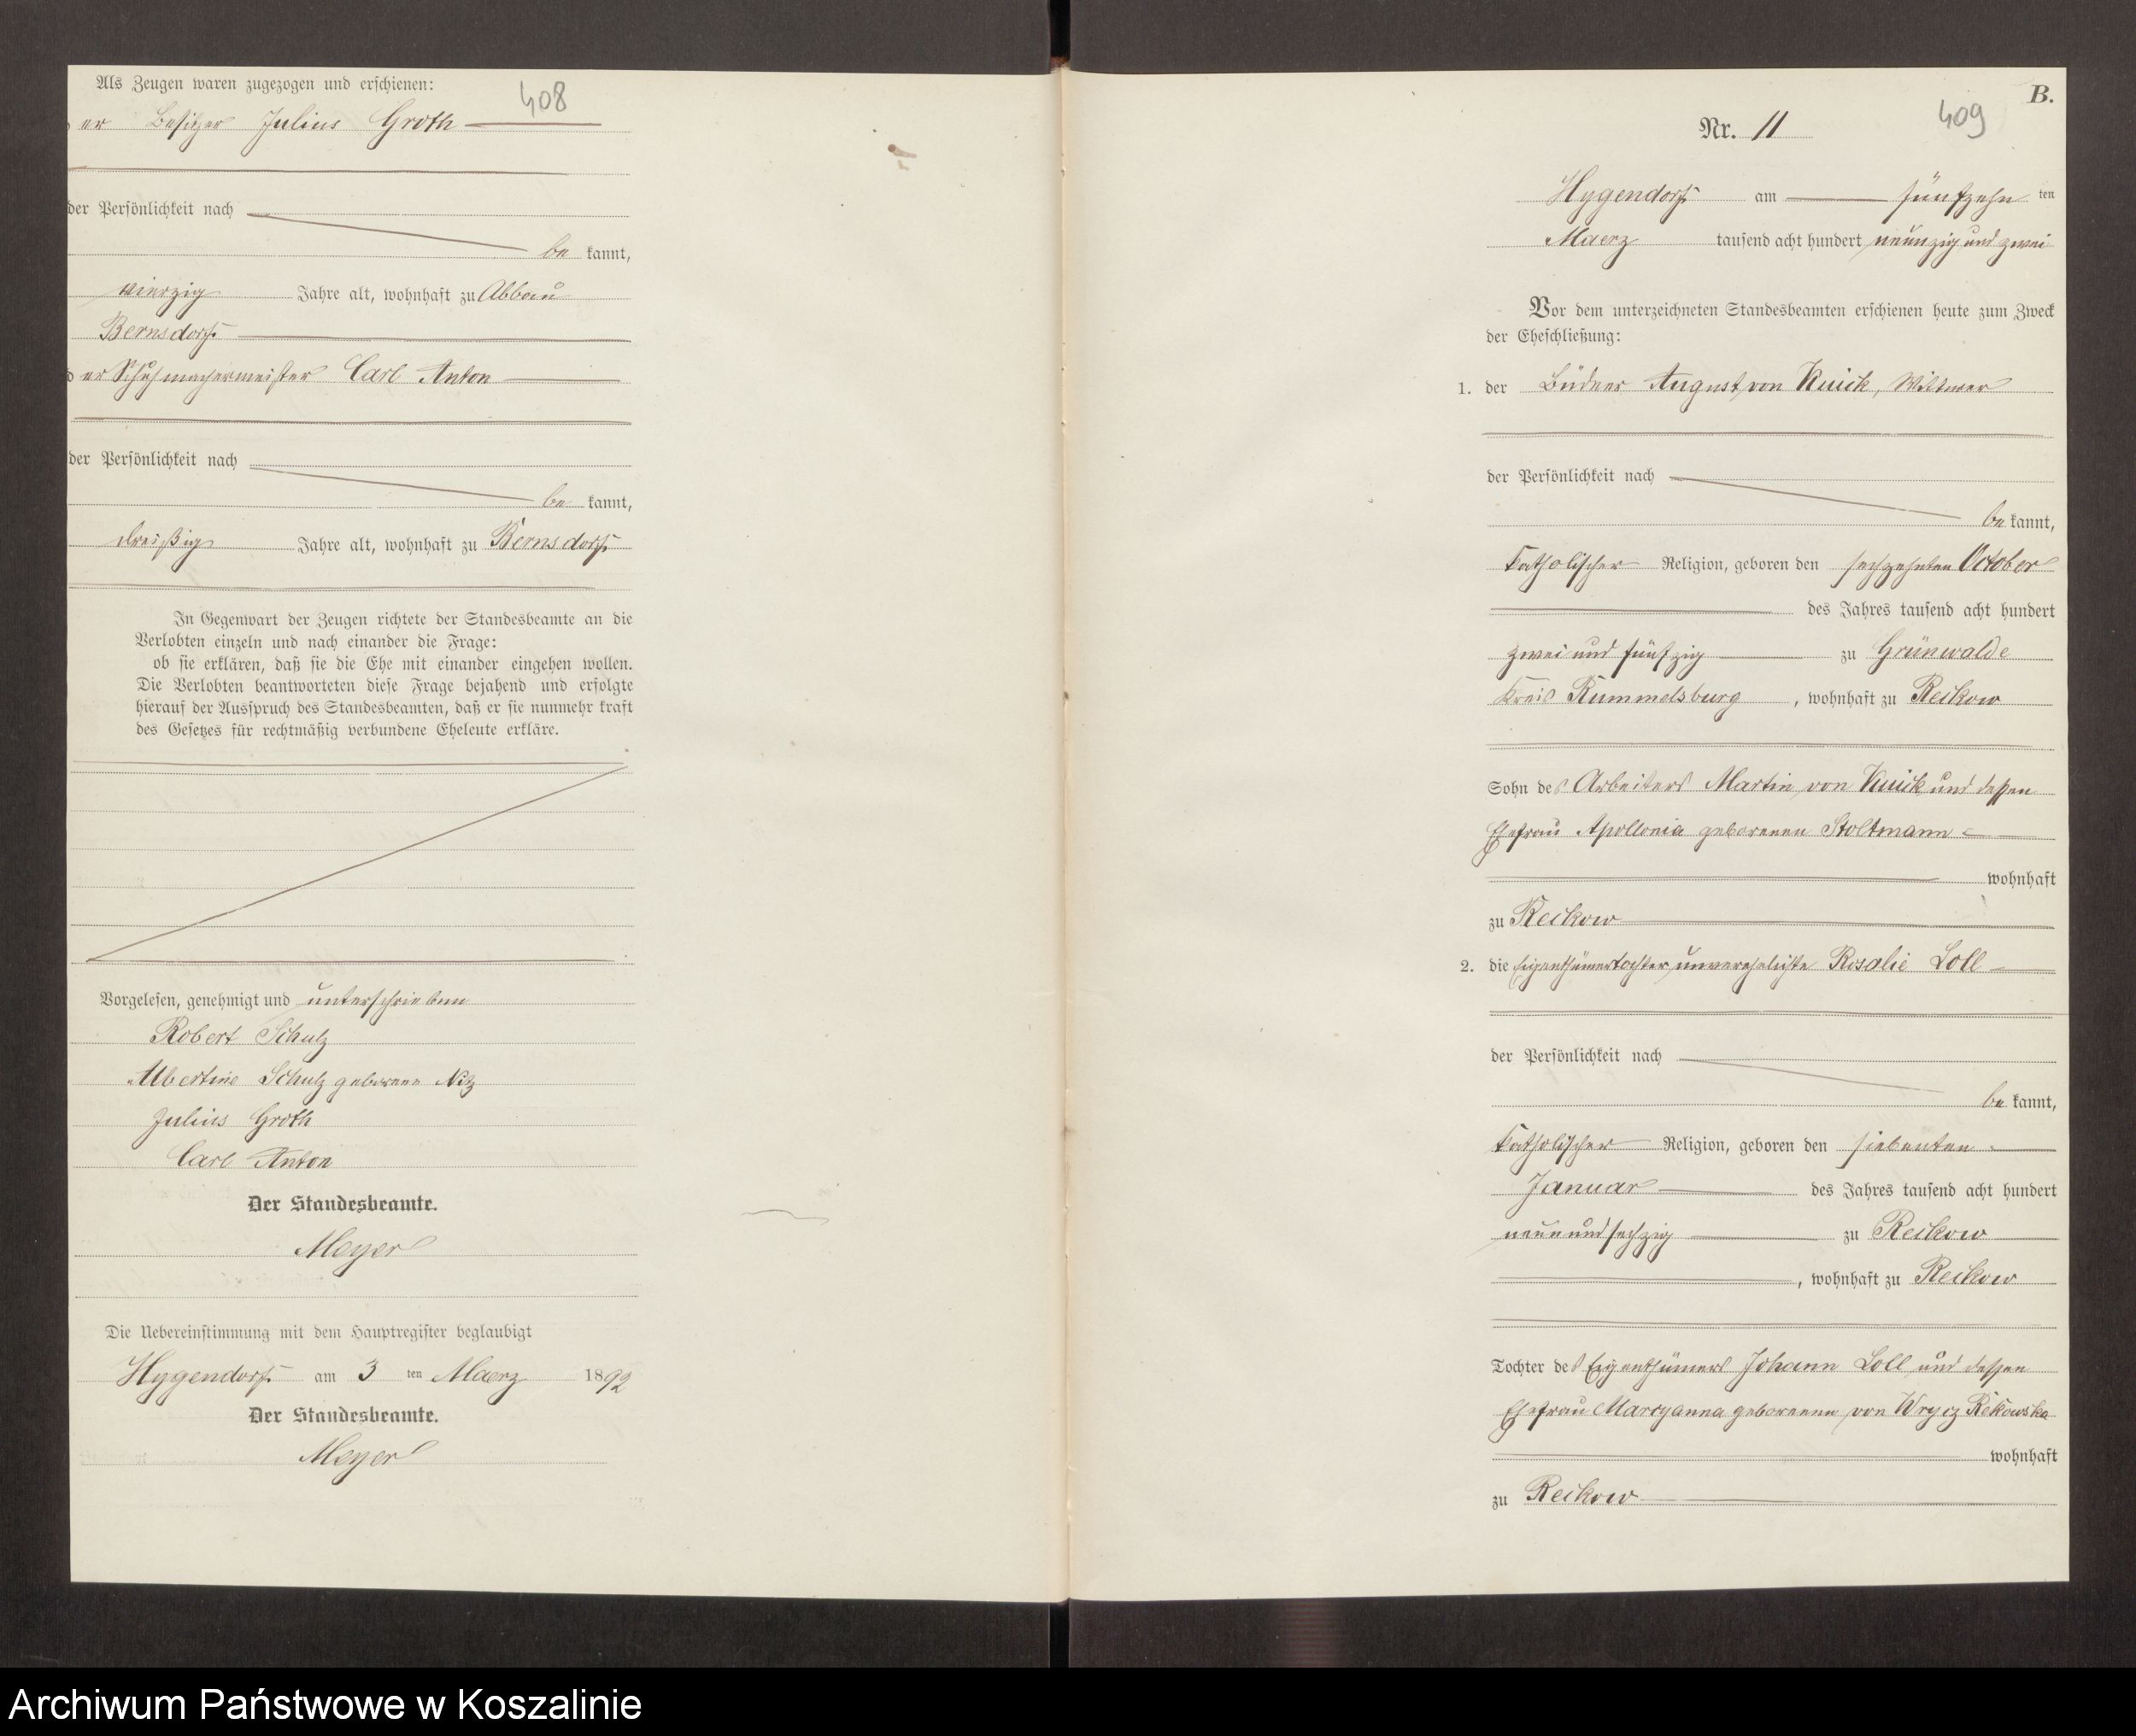 408
Als Zeugen waren zugezogen und erschienen:
er Besitzer Julius Groth
der Persönlichkeit nach
be kannt,
vierzig Jahre alt, wohnhaft zu Abbau
Bernsdorf
er Schuhmachermeister Carl Anton
der Persönlichkeit nach
be kannt,
dreißig Jahre alt, wohnhaft zu Bernsdorf
In Gegenwart der Zeugen richtete der Standesbeamte an die
Verlobten einzeln und nach einander die Frage:
ob sie erklären, daß sie die Ehe mit einander eingehen wollen.
Die Verlobten beantworteten diese Frage bejahend und erfolgte
hierauf der Ausspruch des Standesbeamten, daß er sie nunmehr kraft
des Gesetzes für rechtmäßig verbundene Eheleute erkläre.
Vorgelesen, genehmigt und unterschrieben
Robert Schulz
Albertine Schulz geborene Nitz
Julius Groth
Carl Anton
Der Standesbeamte.
Meyer
Die Uebereinstimmung mit dem Hauptregister beglaubigt
Hygendorf am 3 ten Maerz 1892
Der Standesbeamte.
Meyer
B.
409
Nr. 11
Hygendorf am fünfzehn ten
Maerz tausend acht hundert neunzig und zwei
Vor dem unterzeichneten Standesbeamten erschienen heute zum Zweck
der Eheschließung:
1. der Büdner August von Kuick, Wittwer
der Persönlichkeit nach
be kannt,
katholischer Religion, geboren den sechzehnten October
des Jahres tausend acht hundert
zwei und fünfzig zu Grünwalde
Kreis Rummelsburg, wohnhaft zu Reckow
Sohn des Arbeiters Martin von Kuick und dessen
Ehefrau Apollonia geborenen Stoltmann
wohnhaft
zu Reckow
2. die Eigenthümertochter, unverehelichte Rosalie Loll
der Persönlichkeit nach
be kannt,
katholischer Religion, geboren den siebenten
Januar des Jahres tausend acht hundert
neun und sechzig zu Reckow
, wohnhaft zu Reckow
Tochter des Eigenthümers Johann Loll und dessen
Ehefrau Marryanna geborenen von Wrycz Rekowska
wohnhaft
zu Reckow
Archiwum Państwowe w Koszalinie